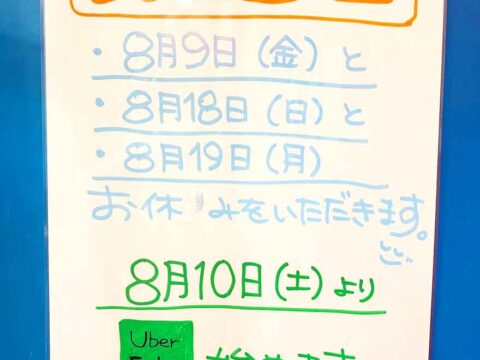 ・8月9日(金)と
・8月18日(日)と
・8月19日(月)
お休みをいただきます。
8月10日(土)より
Uber